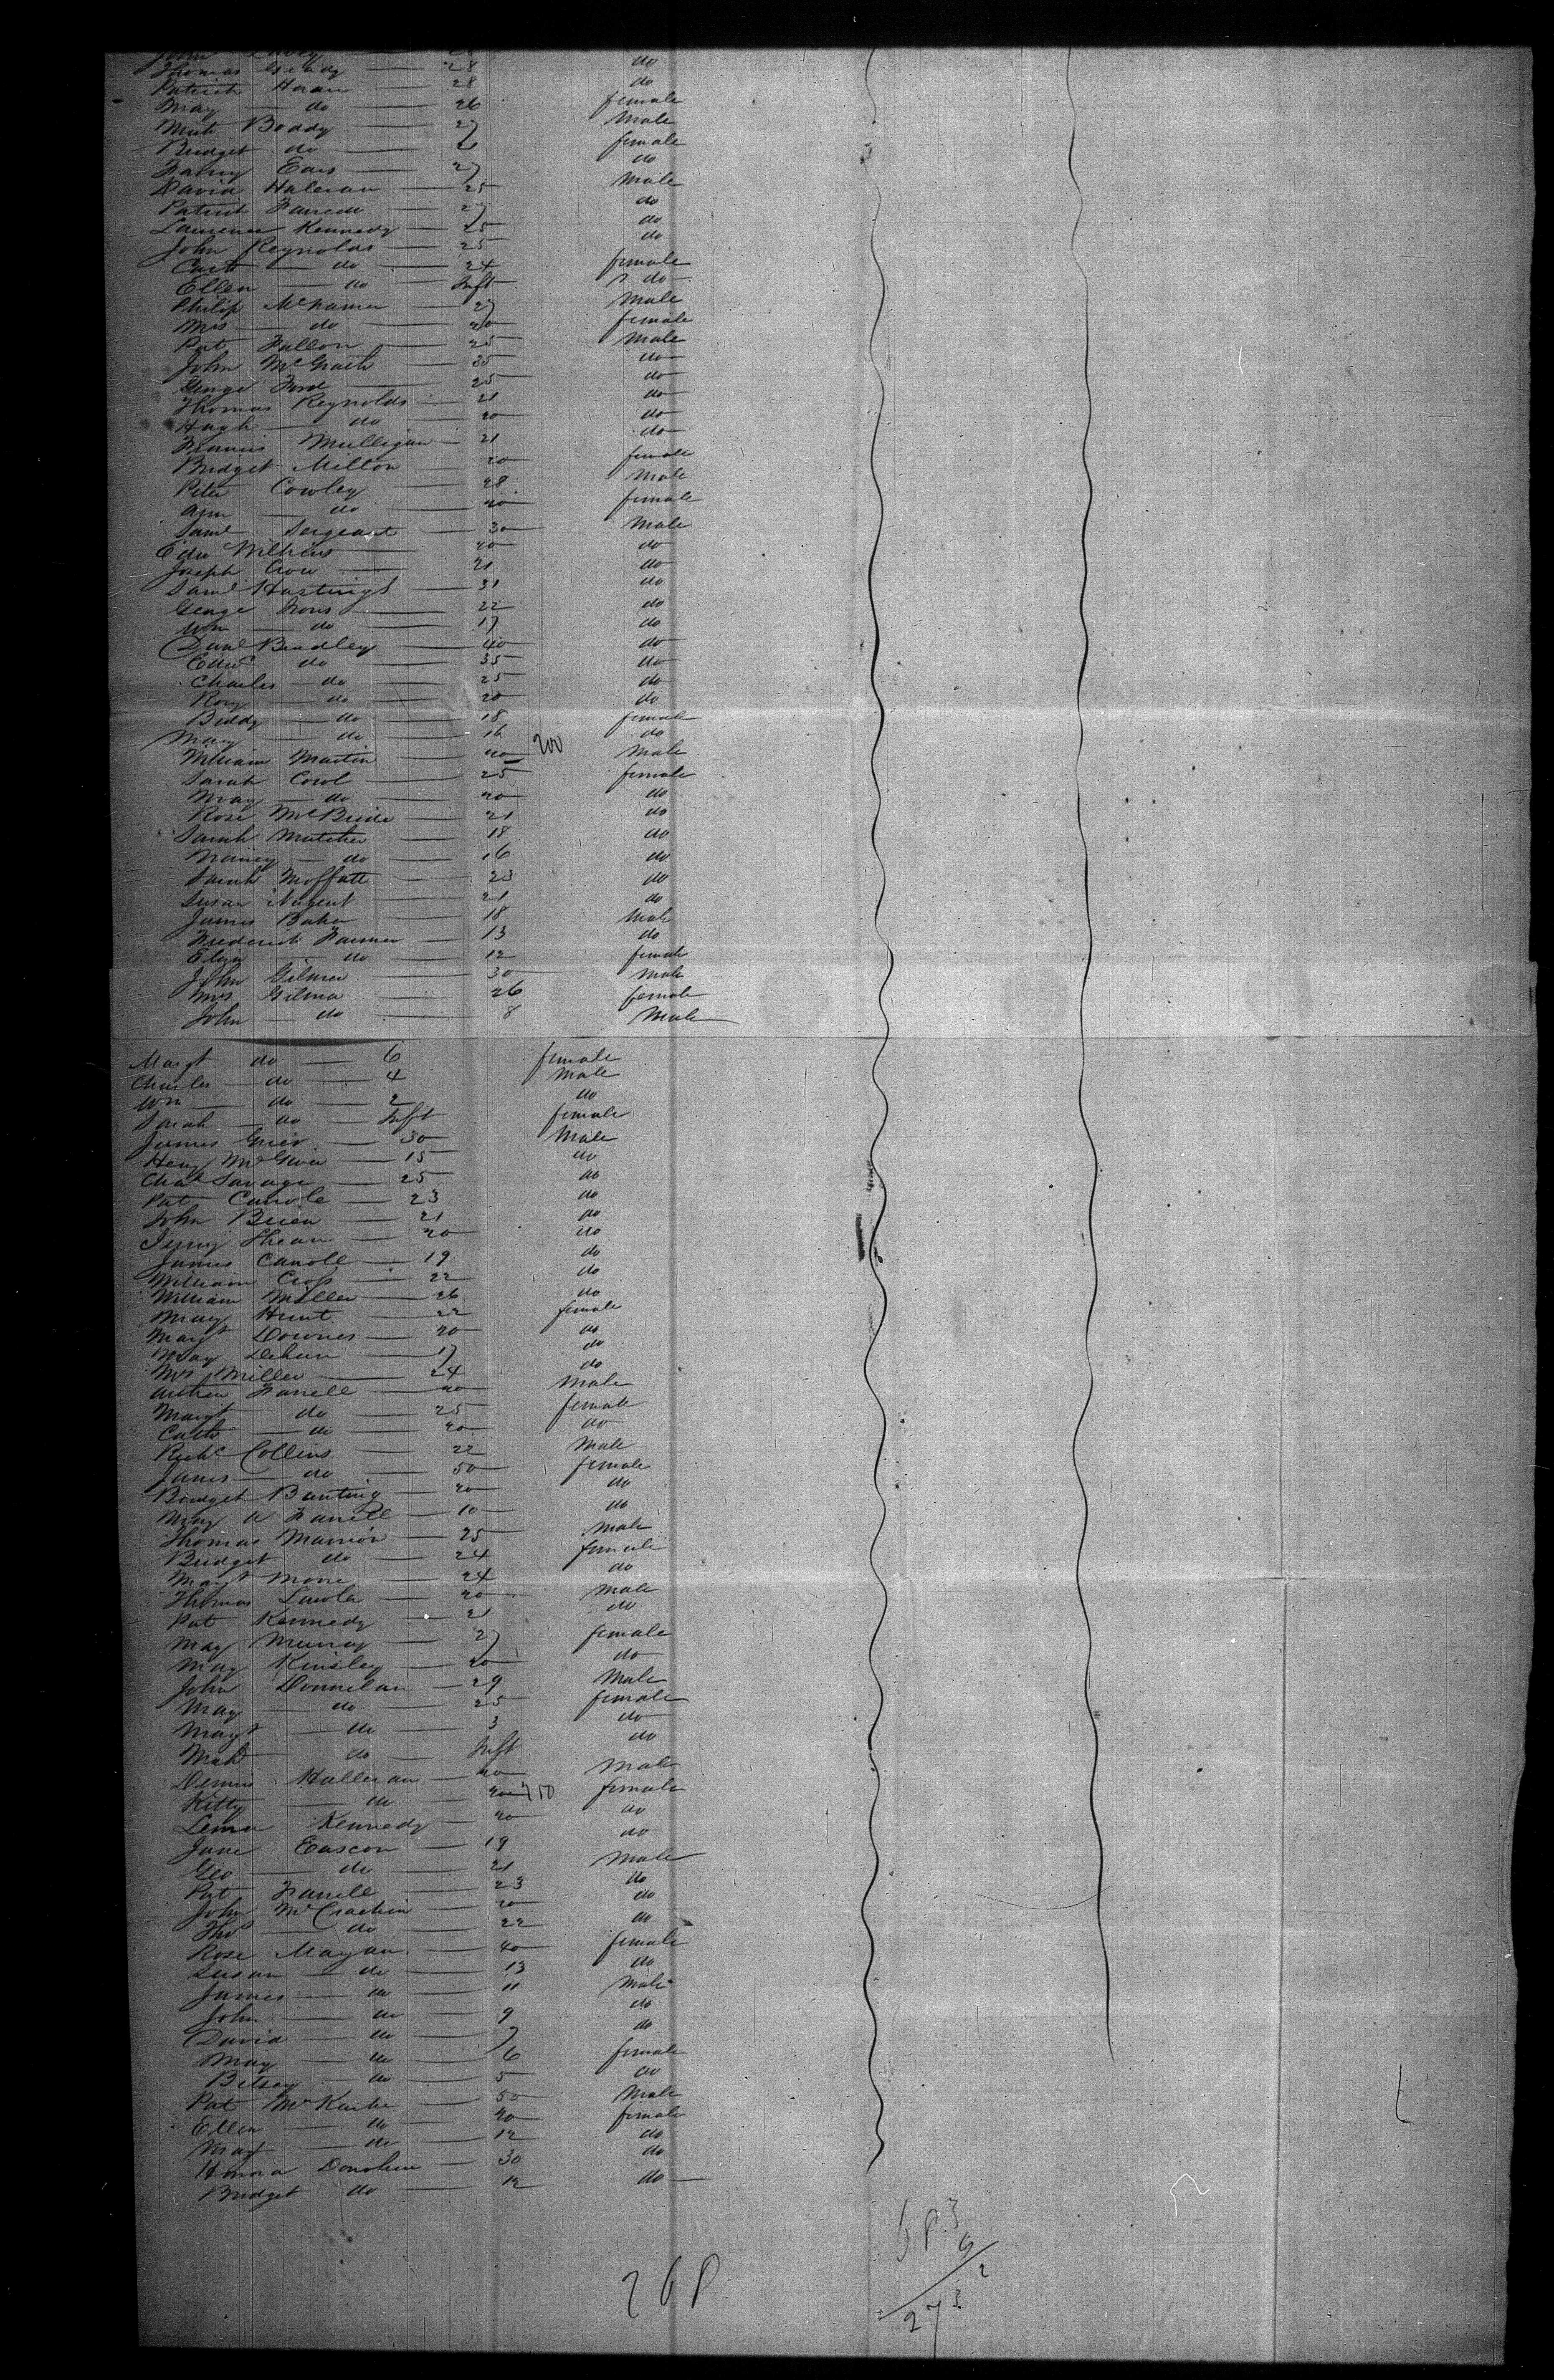 Thomas Grady — 28 do
Patrick Horan — 28 do
Mary — do — 26 female
Mich Boddy — 27 Male
Bridget do — 21 female
Fanny Ears — 27 do
David Haleran — 25 Male
Patrick — 27 do
Laurence Kennedy — 25 do
John Reynolds — 25 do
Cath — do — 24 female
Ellen — do — Inft do
Philip McNamee — 27 Male
Mrs — do — 20 female
Pat Fallon — 25 Male
John McGrath — 35 do
George Ford — 25 do
Thomas Reynolds — 21 do
Hugh — do — 20 do
Francis Mulligan — 21 do
Bridget Milton — 20 female
Peter Cowley — 28 Male
Ann — do — 20 female
Saml Sergeant — 30 Male
Edw Wilkins — 20 do
Joseph Crow — 21 do
Saml Hastings — 31 do
George Irons — 22 do
Wm — do — 17 do
Danl Bradley — 40 do
Edwd do — 35 do
Charles — do — 25 do
Rory — do — 20 do
Biddy — do — 18 female
Mary — do — 16 do
William Martin — 40 200 Male
Sarah Cowl — 25 female
Mary — do — 20 do
Rose McBride — 21 do
Sarah Mutcher — 18 do
Nancy — do — 16 do
Sarah Moffatt — 23 do
Susan Nugent — 21 do
James Baker — 18 Male
Frederick Farmer — 13 do
Eliza — do — 12 female
John Gilmer — 30 Male
Mrs Gilma — 26 female
John — do — 8 Male
Margt do — 6 female
Charles — do — 4 Male
Wm — do — 2 do
Sarah — do — Inft female
James Grier — 30 Male
Henry McGiver — 15 do
Chas Savage — 25 do
Pat Carrole — 23 do
John Brien — 21 do
Shean — 20 do
James Carroll — 19 do
William Crofs — 22 do
William Miller — 26 do
Mary Hunt — 22 female
Margt Downes — 20 do
Mary — 17 do
Mrs Miller — 24 do
Farrell — 40 Male
Margt do — 25 female
Cath — do — 20 do
Richd Collins — 22 Male
James — do — 50 female
Bridget Banting — 20 do
Mary A Farrell — 10 do
Thomas Marrion — 25 Male
Bridget do — 24 female
Margt Morre — 24 do
Thomas — 20 Male
Pat Kennedy — 21 do
Mary Murray — 27 female
Mary Kinsley — 20 do
John Donnelan — 29 Male
Mary — do — 25 female
Margt — do — 3 do
do — Inft do
Dennis Halleran — 40 Male
Kitty — do — 20 250 female
Kennedy — 20 do
Jane Eascon — 19 do
Geo — do — 21 Male
Pat Farrell — 23 do
John McCrackin — 20 do
Thos — do — 22 do
Rose Magan — 40 female
Susan — do — 13 do
James — do — 11 Male
John — do — 9 do
David — do — 7 do
Mary — do — 6 female
Betsey — do — 5 do
Pat — 50 Male
Ellen — do — 40 female
Mary — do — 12 do
Honora Donohue — 30 do
Bridget do — 12 do
268
683
273